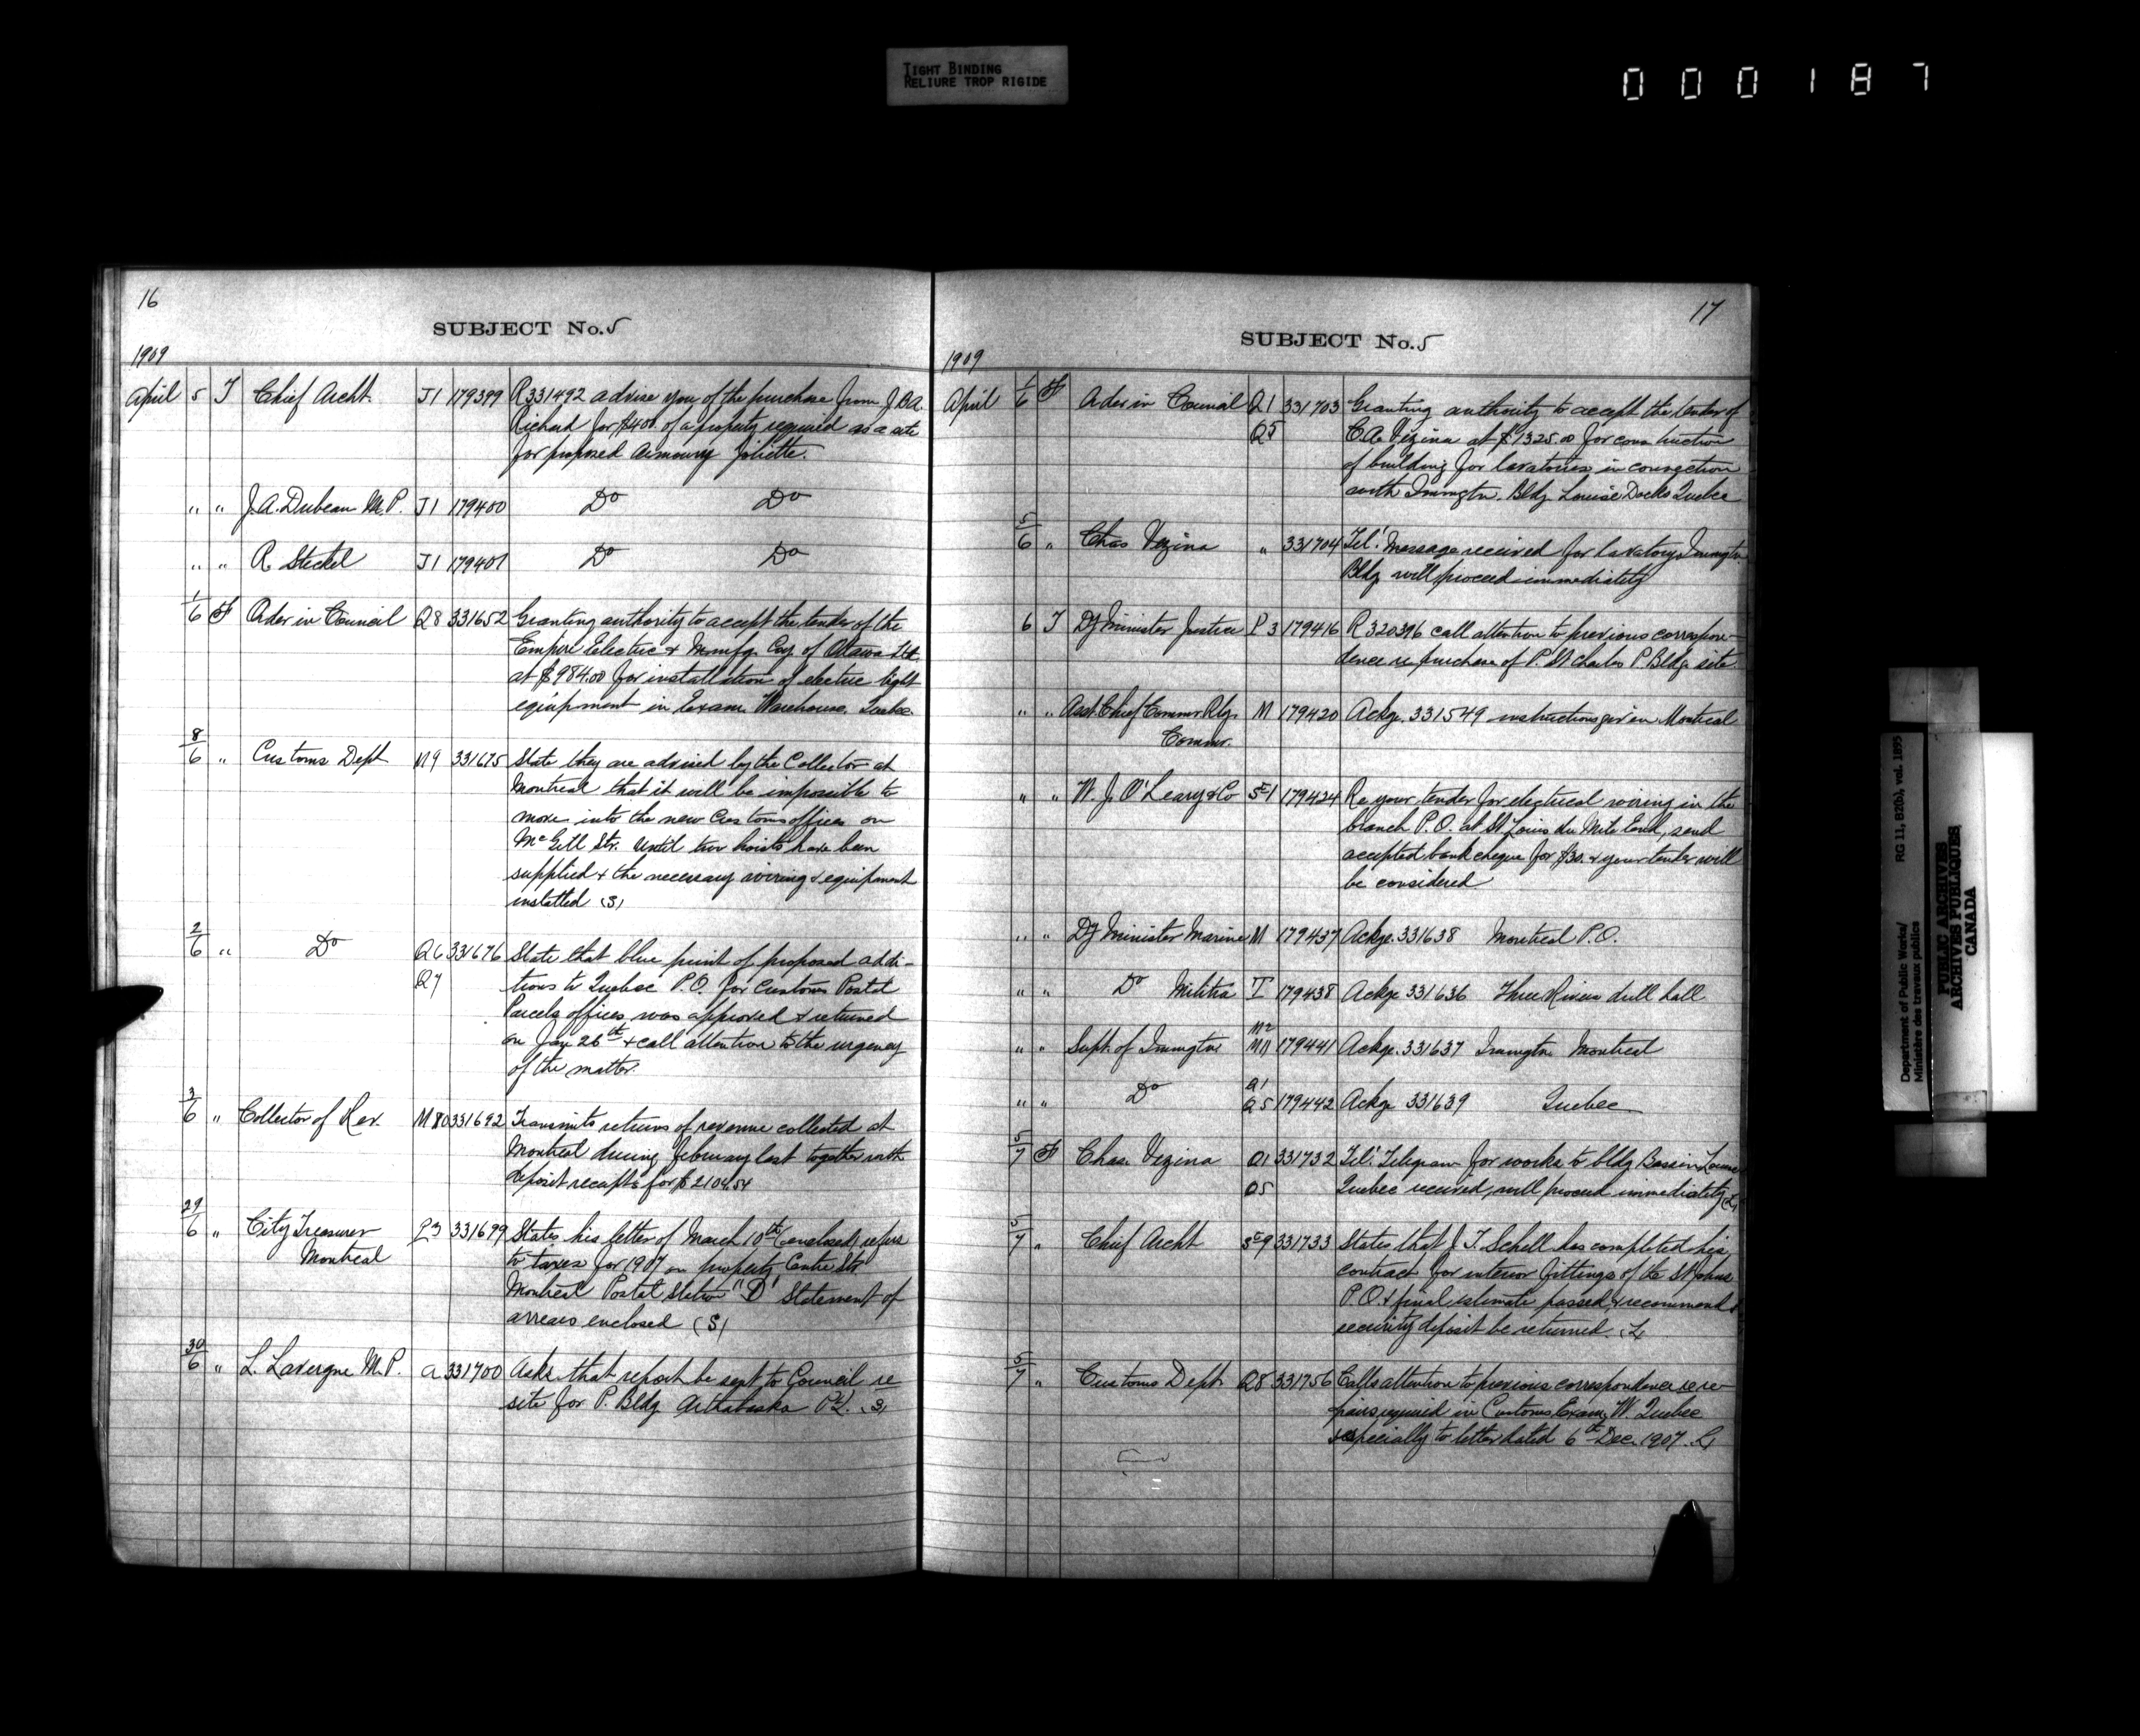 TIGHT BINDING
RELIURE TROP RIGIDE
000187
16
SUBJECT No. 5
1909
April 5 T Chief Archt. J1 179399 R 331492 advise you of the purchase from J.B.A.
Richard for $400. of a property required as a site
for proposed Armoury Joliette.
" " J.A. Dubeau M.P. J1 179400 Do Do
" " R. Steckel J1 179401 Do Do
1/6 F Order in Council Q8 331652 Granting authority to accept the tender of the
Empire Electric & Manfg. Coy of Ottawa Ltd
at $984.00 for installation of electric light
equipment in Exam. Warehouse. Quebec.
8/6 " Customs Dept M9 331675 State they are advised by the Collector at
Montreal that it will be impossible to
move into the new Customs offices on
McGill Str. until two hoists have been
supplied & the necessary wiring & equipment
installed (S)
2/6 " Do Q6 331676 State that blue print of proposed addi-
Q7 tions to Quebec P.O. for Customs Postal
Parcels offices, was approved & returned
on Jan 26th & call attention to the urgency
of the matter.
3/6 " Collector of Rev. M80 331692 Transmits returns of revenue collected at
Montreal during February last together with
deposit receipts for $2104.54
29/6 " City Treasurer P3 331699 States his letter of March 10th (enclosed) refers
Montreal to taxes for 1907 on property Centre Str
Montreal Postal Station "D" Statement of
arrears enclosed (S)
30/6 " L. Lavergne M.P. A 331700 Asks that report be sent to Council re
site for P. Bldg Arthabaska P.Q. (S)
17
SUBJECT No. 5
1909
April 1/6 F Order in Council Q1 331703 Granting authority to accept the tender of
Q5 C.A. Vezina at $1325.00 for construction
of building for lavatories in connection
with Immgtn. Bldg. Louise Docks Quebec
5/6 " Chas Vezina " 331704 Tel. Message received for lavatory Immgtn
Bldg will proceed immediately
6 T Dy Minister Justice P3 179416 R 320396 call attention to previous correspon-
dence re purchase of P. St Charles P. Bldg site
" " Asst. Chief Commr. Rly. M 179420 Ackge. 331549 instructions given Montreal
Commr.
" " W. J. O'Leary & Co Sc1 179424 Re your tender for electrical wiring in the
branch P.O. at St Louis du Mile End, send
accepted bank cheque for $30. & your tender will
be considered
" " Dy Minister Marine M 179437 Ackge. 331638 Montreal P.O.
" " Do Militia T 179438 Ackge 331636 Three Rivers drill hall
" " Supt. of Immgtn M2 M11 179441 Ackge. 331637 Immgtn Montreal
" " Do Q1 Q5 179442 Ackge 331639 Quebec
5/7 F Chas. Vezina Q1 331732 Tel. Telegram for works to bldg Bassin Louise
Q5 Quebec received, will proceed immediately
5/7 " Chief Archt Sc9 331733 States that J. T. Schell has completed his
contract for interior fittings of the St Johns
P.O. & final estimate passed, & recommend
security deposit be returned.
5/7 " Customs Dept. Q8 331756 Calls attention to previous correspondence re re-
pairs required in Customs Exam. W. Quebec
especially to letter dated 6th Dec. 1907.
Department of Public Works/ RG 11, B2(b), vol. 1895
Ministère des travaux publics
PUBLIC ARCHIVES
ARCHIVES PUBLIQUES
CANADA